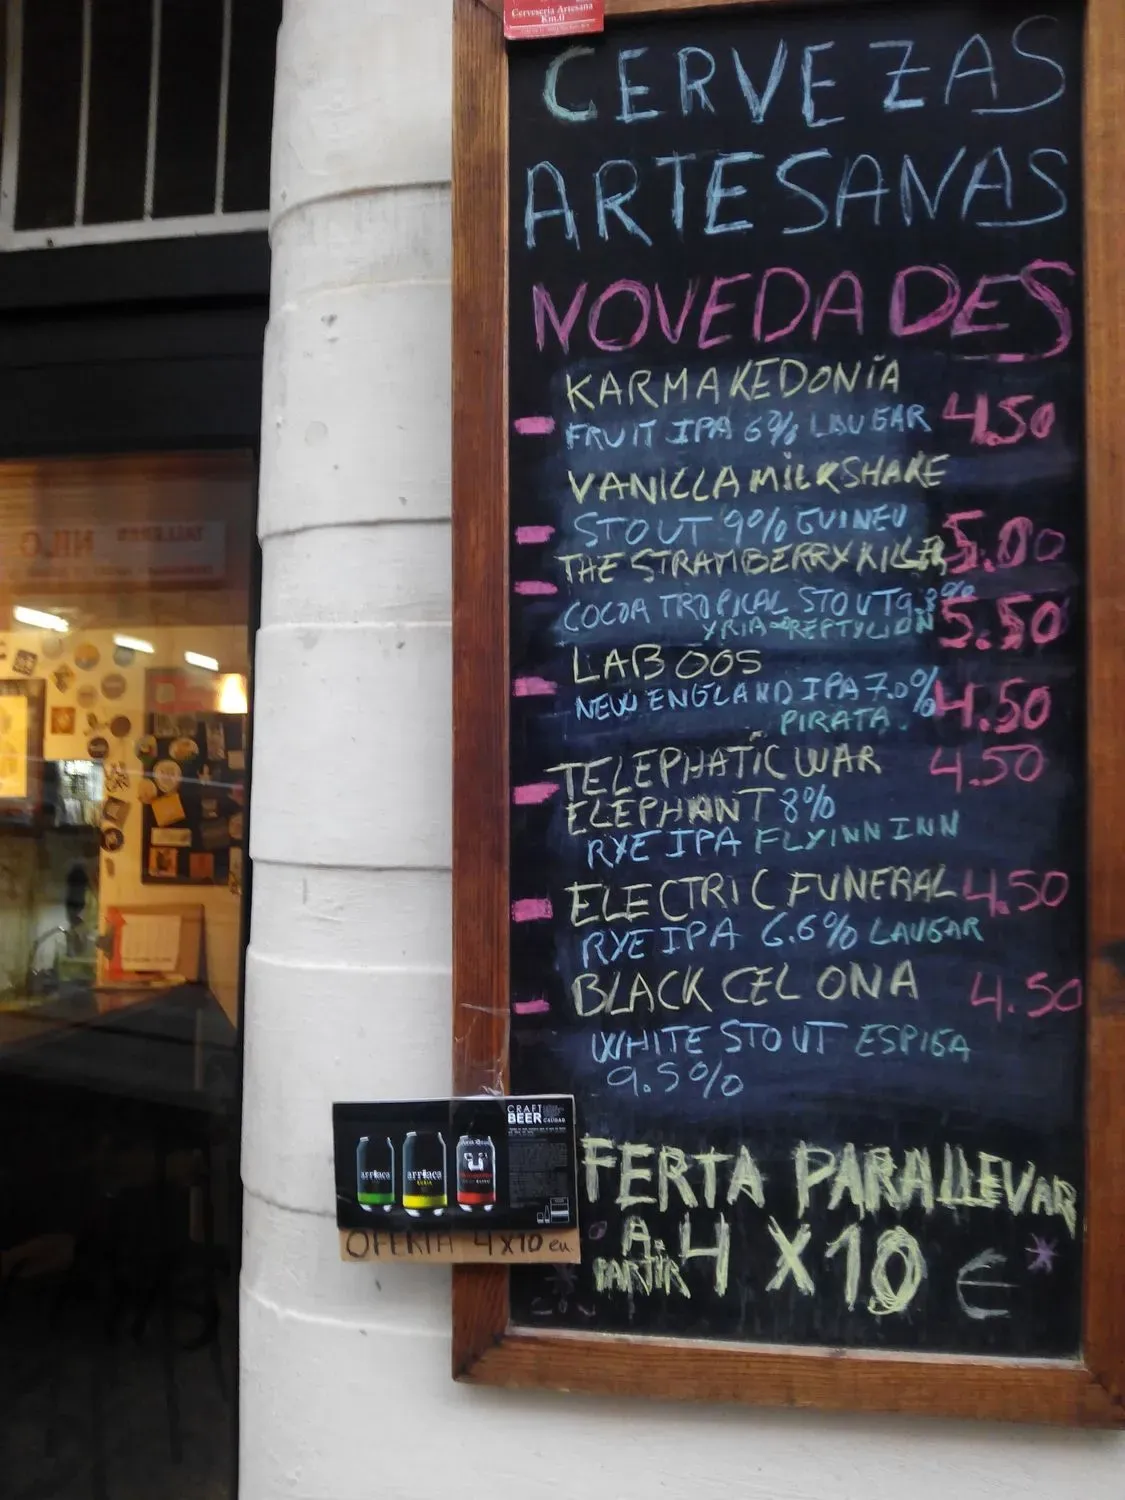 Cerveseria Artesana
Km.0
CERVEZAS
ARTESANAS
NOVEDADES
KARMA KEDONÍA
FRUIT IPA 6% LAUGAR 4.50
VANILLA MILKSHAKE
STOUT 9% GUINEU 5.00
THE STRAWBERRY KILLER
COCOA TROPICAL STOUT 5.50
YRIA-REPTYLION
LAB 005
NEW ENGLAND IPA 7.0% 4.50
PIRATA.
TELEPHATIC WAR 4.50
ELEPHANT 8%
RYE IPA FLYINN INN
ELECTRIC FUNERAL 4.50
RYE IPA 6.6% LAUGAR
BLACK CELONA 4.50
WHITE STOUT ESPIGA
9.5%
FERTA PARA LLEVAR
A.
PARTIR 4 X 10 €
CRAFT
BEER
CAUDAS
arriaca
arriaca
RUBIA
OFERTA 4X10 eu.
TALLERES
NILO